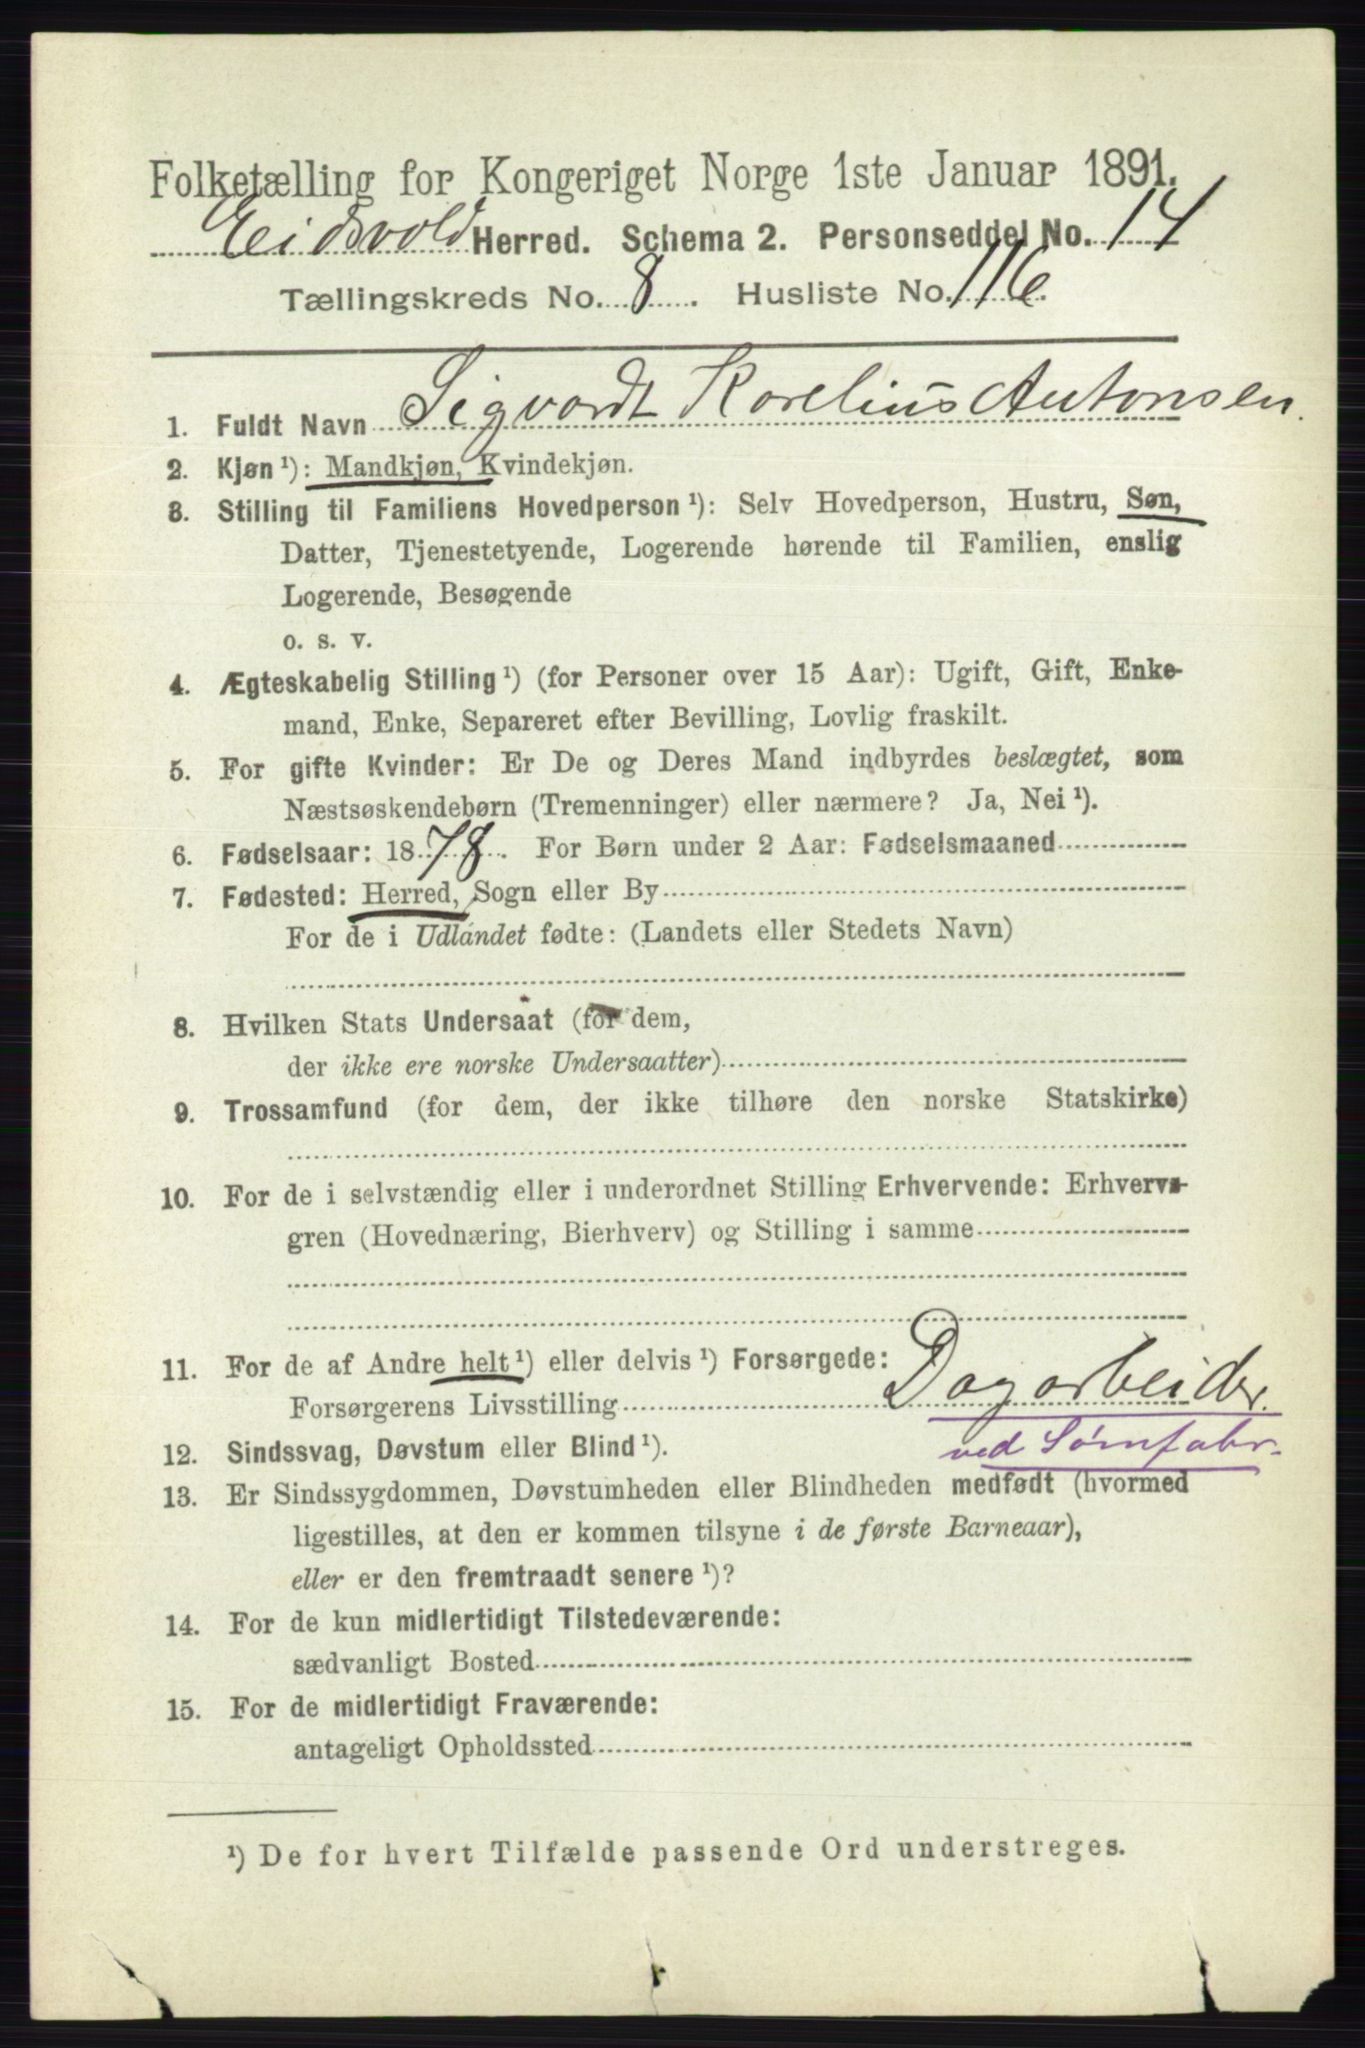 Folketælling for Kongeriget Norge 1ste Januar 1891.
Eidsvold Herred. Schema 2. Personseddel No. 14
Tællingskreds No. 8. Husliste No. 116.
1. Fuldt Navn Sigvardt Karelius Antonsen.
2. Kjøn ¹): Mandkjøn, Kvindekjøn.
3. Stilling til Familiens Hovedperson ¹): Selv Hovedperson, Hustru, Søn,
Datter, Tjenestetyende, Logerende hørende til Familien, enslig
Logerende, Besøgende
o. s. v.
4. Ægteskabelig Stilling ¹) (for Personer over 15 Aar): Ugift, Gift, Enke-
mand, Enke, Separeret efter Bevilling, Lovlig fraskilt.
5. For gifte Kvinder: Er De og Deres Mand indbyrdes beslægtet, som
Næstsøskendebørn (Tremenninger) eller nærmere? Ja, Nei ¹).
6. Fødselsaar: 1878. For Børn under 2 Aar: Fødselsmaaned
7. Fødested: Herred, Sogn eller By
For de i Udlandet fødte: (Landets eller Stedets Navn)
8. Hvilken Stats Undersaat (for dem,
der ikke ere norske Undersaatter)
9. Trossamfund (for dem, der ikke tilhøre den norske Statskirke)
10. For de i selvstændig eller i underordnet Stilling Erhvervende: Erhvervs-
gren (Hovednæring, Bierhverv) og Stilling i samme
11. For de af Andre helt ¹) eller delvis ¹) Forsørgede:
Forsørgerens Livsstilling Dagarbeider.
12. Sindssvag, Døvstum eller Blind ¹). ved Sømfabr.
13. Er Sindssygdommen, Døvstumheden eller Blindheden medfødt (hvormed
ligestilles, at den er kommen tilsyne i de første Barneaar),
eller er den fremtraadt senere ¹)?
14. For de kun midlertidigt Tilstedeværende:
sædvanligt Bosted
15. For de midlertidigt Fraværende:
antageligt Opholdssted
¹) De for hvert Tilfælde passende Ord understreges.